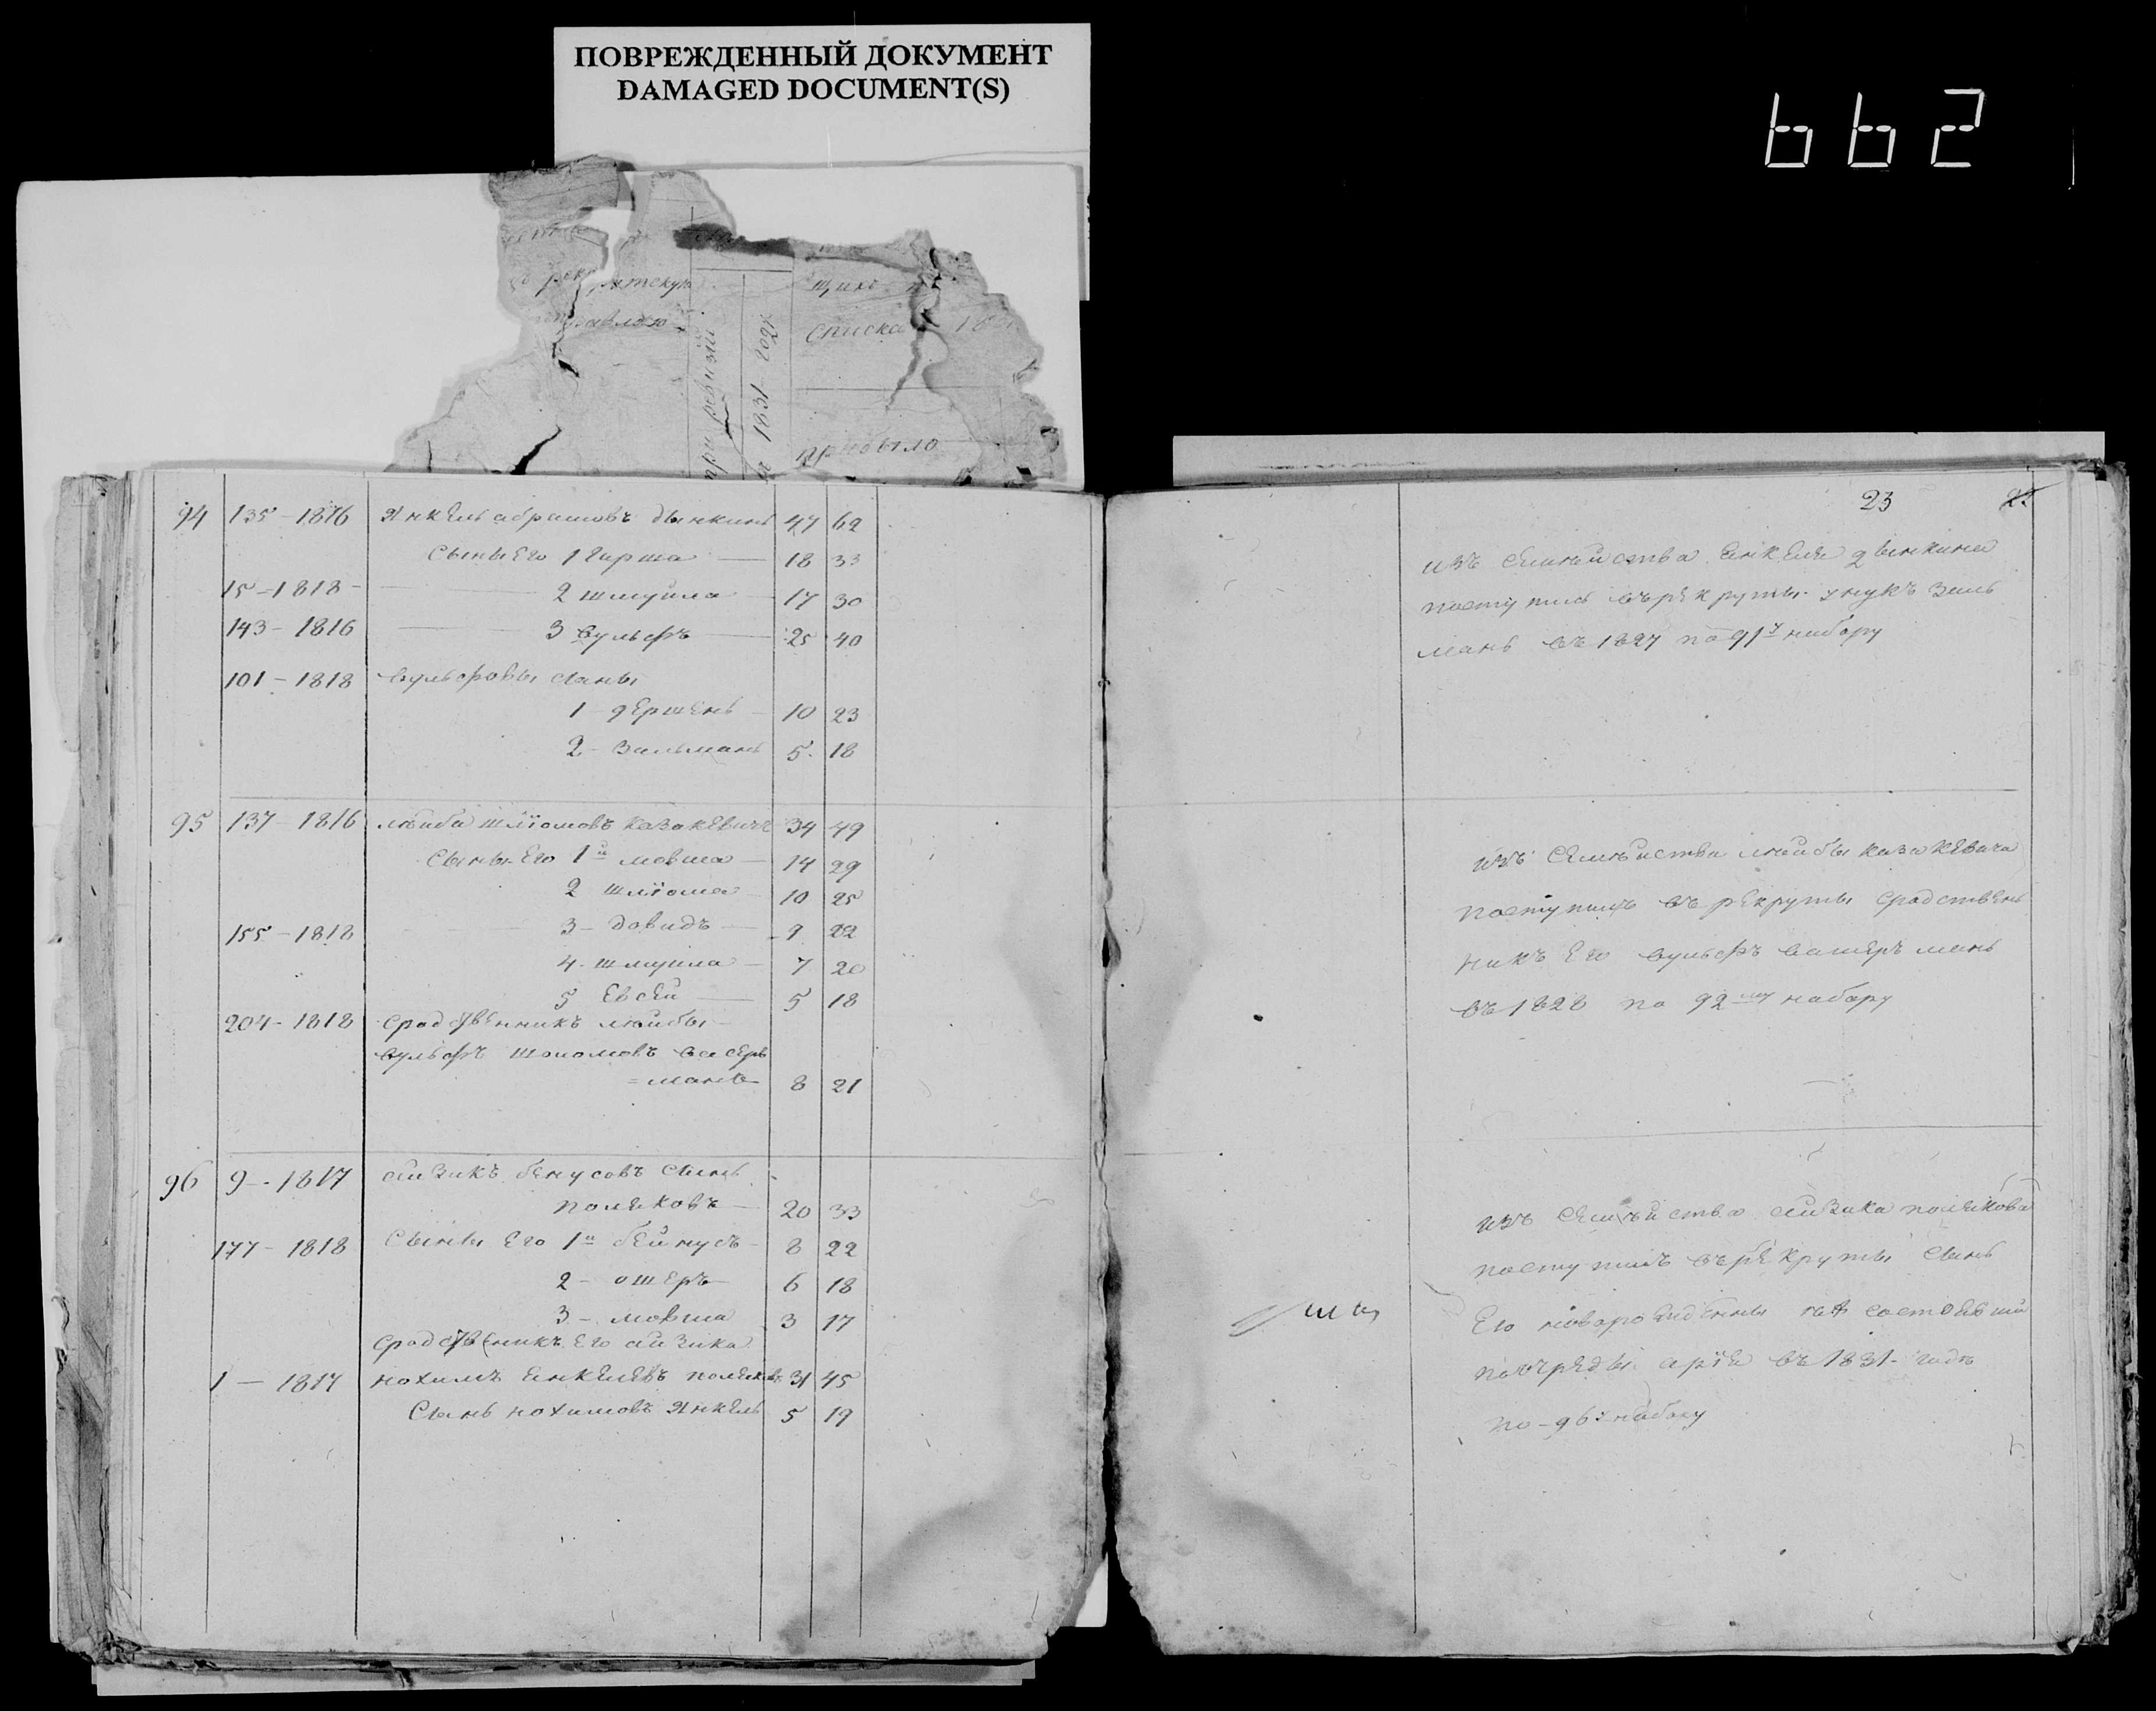 ПОВРЕЖДЕННЫЙ ДОКУМЕНТ
DAMAGED DOCUMENT(S)
662
щихъ
списка
при ревизіи
1831 году
прибыло
94 135 - 1816 Янкель абрамовъ дынкинъ 47 62
Сыны Его 1 Гирша 18 33
15 - 1818 - 2 шмуйла 17 30
143 - 1816 3 вульфъ 25 40
101 - 1818 вульфовы сыны
1 - гершень 10 23
2 - Зальмань 5 18
95 137 - 1816 лейба шліомовъ казакевичъ 34 49
Сыны Его 1й мовша 14 29
2 шліома 10 25
155 - 1818 3 - довидъ 9 22
4 - шмуила 7 20
5 Евсей 5 18
204 - 1818 сродственникъ лейбы
вульфъ шоломовъ васерь
= мань 8 21
96 9 - 1817 айзикъ бенусовъ сынъ
поляковъ 20 33
177 - 1818 Сыны Его 1й бейнусъ 8 22
2 - ошеръ 6 18
3 - мовша 3 17
сродственикъ Его айзика
1 - 1817 нохимъ янкелевъ поляковъ 31 45
Сынъ нохимовъ Янкель 5 19
23 22
изъ семейства янкеля дынкина
поступилъ въ рекруты внукъ заль
мань въ 1827 по 91у набору
изъ семейства лейбы казакевича
поступилъ въ рекруты сродствень
никъ Его вульфъ васерь мань
въ 1828 по 92му набору
изъ семейства айзика полякова
поступилъ въ рекруты сынъ
Его новорожденны состоявши
почереды арія въ 1831 - годъ
по - 96 набору